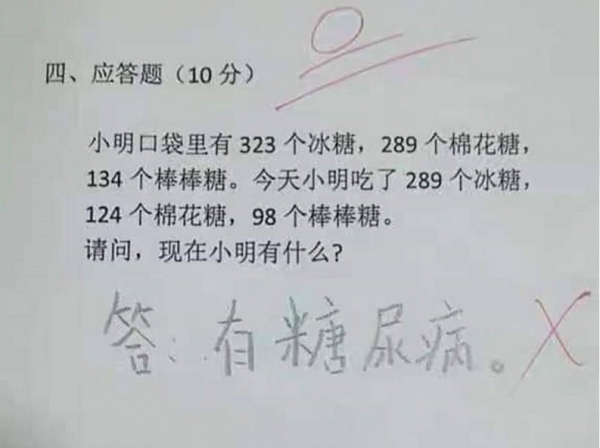 四、应答题（10 分）
小明口袋里有 323 个冰糖，289 个棉花糖，
134 个棒棒糖。今天小明吃了 289 个冰糖，
124 个棉花糖，98 个棒棒糖。
请问，现在小明有什么?
答：有糖尿病。